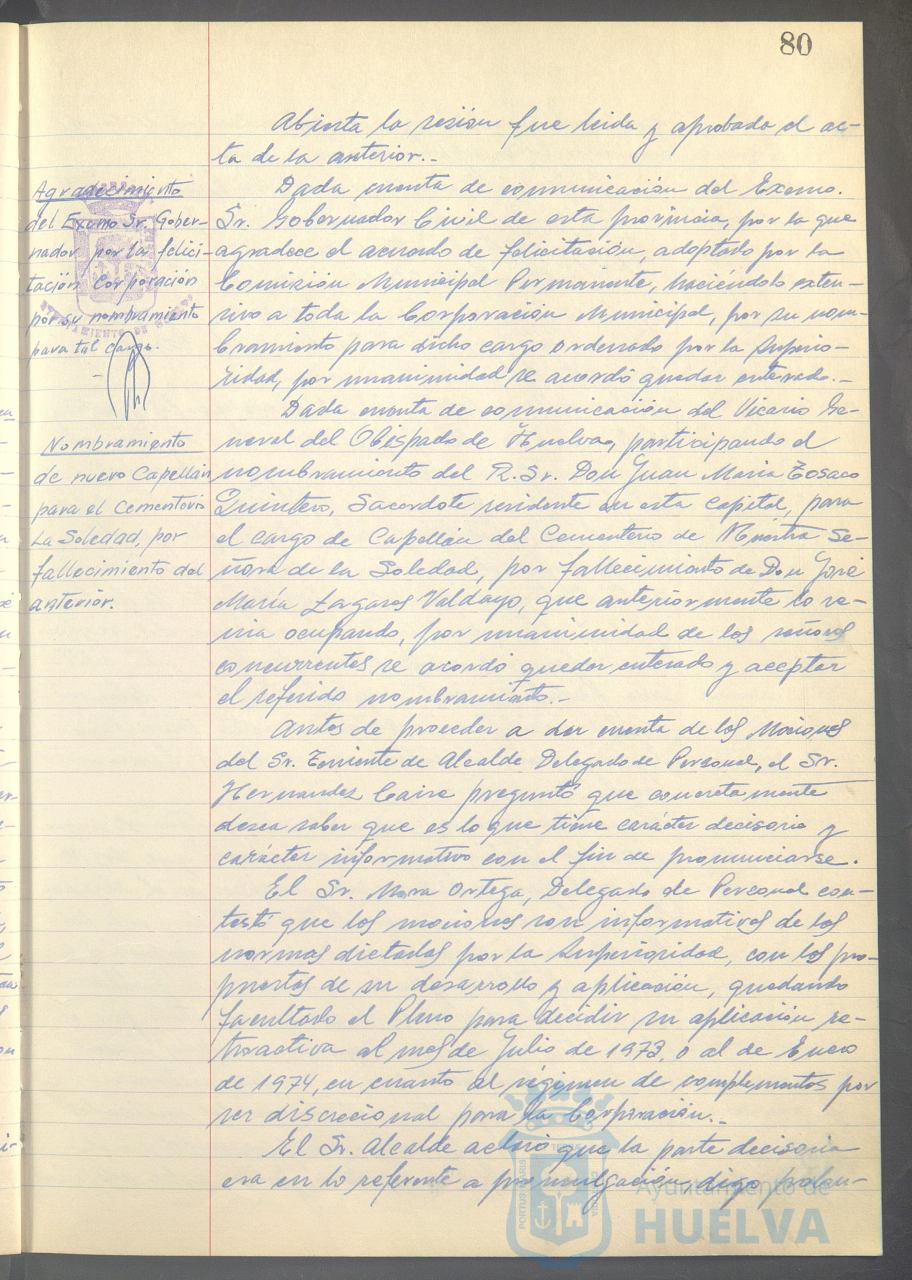 80
Abierta la sesión fue leida y aprobada el ac-
ta de la anterior.-
Agradecimiento
del Excmo Sr. Gober-
nador por la felici-
tación Corporación
por su nombramiento
para tal cargo.
Dada cuenta de comunicación del Excmo.
Sr. Gobernador Civil de esta provincia, por la que
agradece el acuerdo de felicitación, adoptado por la
Comisión Municipal Permanente, haciéndolo exten-
sivo a toda la Corporación Municipal, por su nom-
bramiento para dicho cargo ordenado por la Superio-
ridad, por unanimidad se acordó quedar enterado.-
Nombramiento
de nuevo Capellán
para el Cementerio
La Soledad, por
fallecimiento del
anterior.
Dada cuenta de comunicación del Vicario Ge-
neral del Obispado de Huelva, participando el
nombramiento del R. Sr. Don Juan Maria Tosaco
Quintero, Sacerdote residente en esta capital, para
el cargo de Capellán del Cementerio de Nuestra Se-
ñora de la Soledad, por fallecimiento de Don José
María Valdayo, que anteriormente lo ve-
nia ocupando, por unanimidad de los señores
concurrentes se acordó quedar enterado y aceptar
el referido nombramiento.-
Antes de proceder a dar cuenta de las Mociones
del Sr. Teniente de Alcalde Delegado de Personal, el Sr.
Hernandez preguntó que concretamente
desea saber que es lo que tiene carácter decisorio y
carácter informativo con el fin de pronunciarse.
El Sr. Mora Ortega, Delegado de Personal con-
testó que las mociones son informativas de las
normas dictadas por la Superioridad, con las pro-
puestas de su desarrollo y aplicación, quedando
facultado el Pleno para decidir su aplicación re-
troactiva al mes de Julio de 1973, o al de Enero
de 1974, en cuanto al régimen de complementos por
ser discrecional para la Corporación.-
El Sr. Alcalde aclaró que la parte decisoria
era en lo referente a promulgación, digo prolon-
Ayuntamiento de
HUELVA